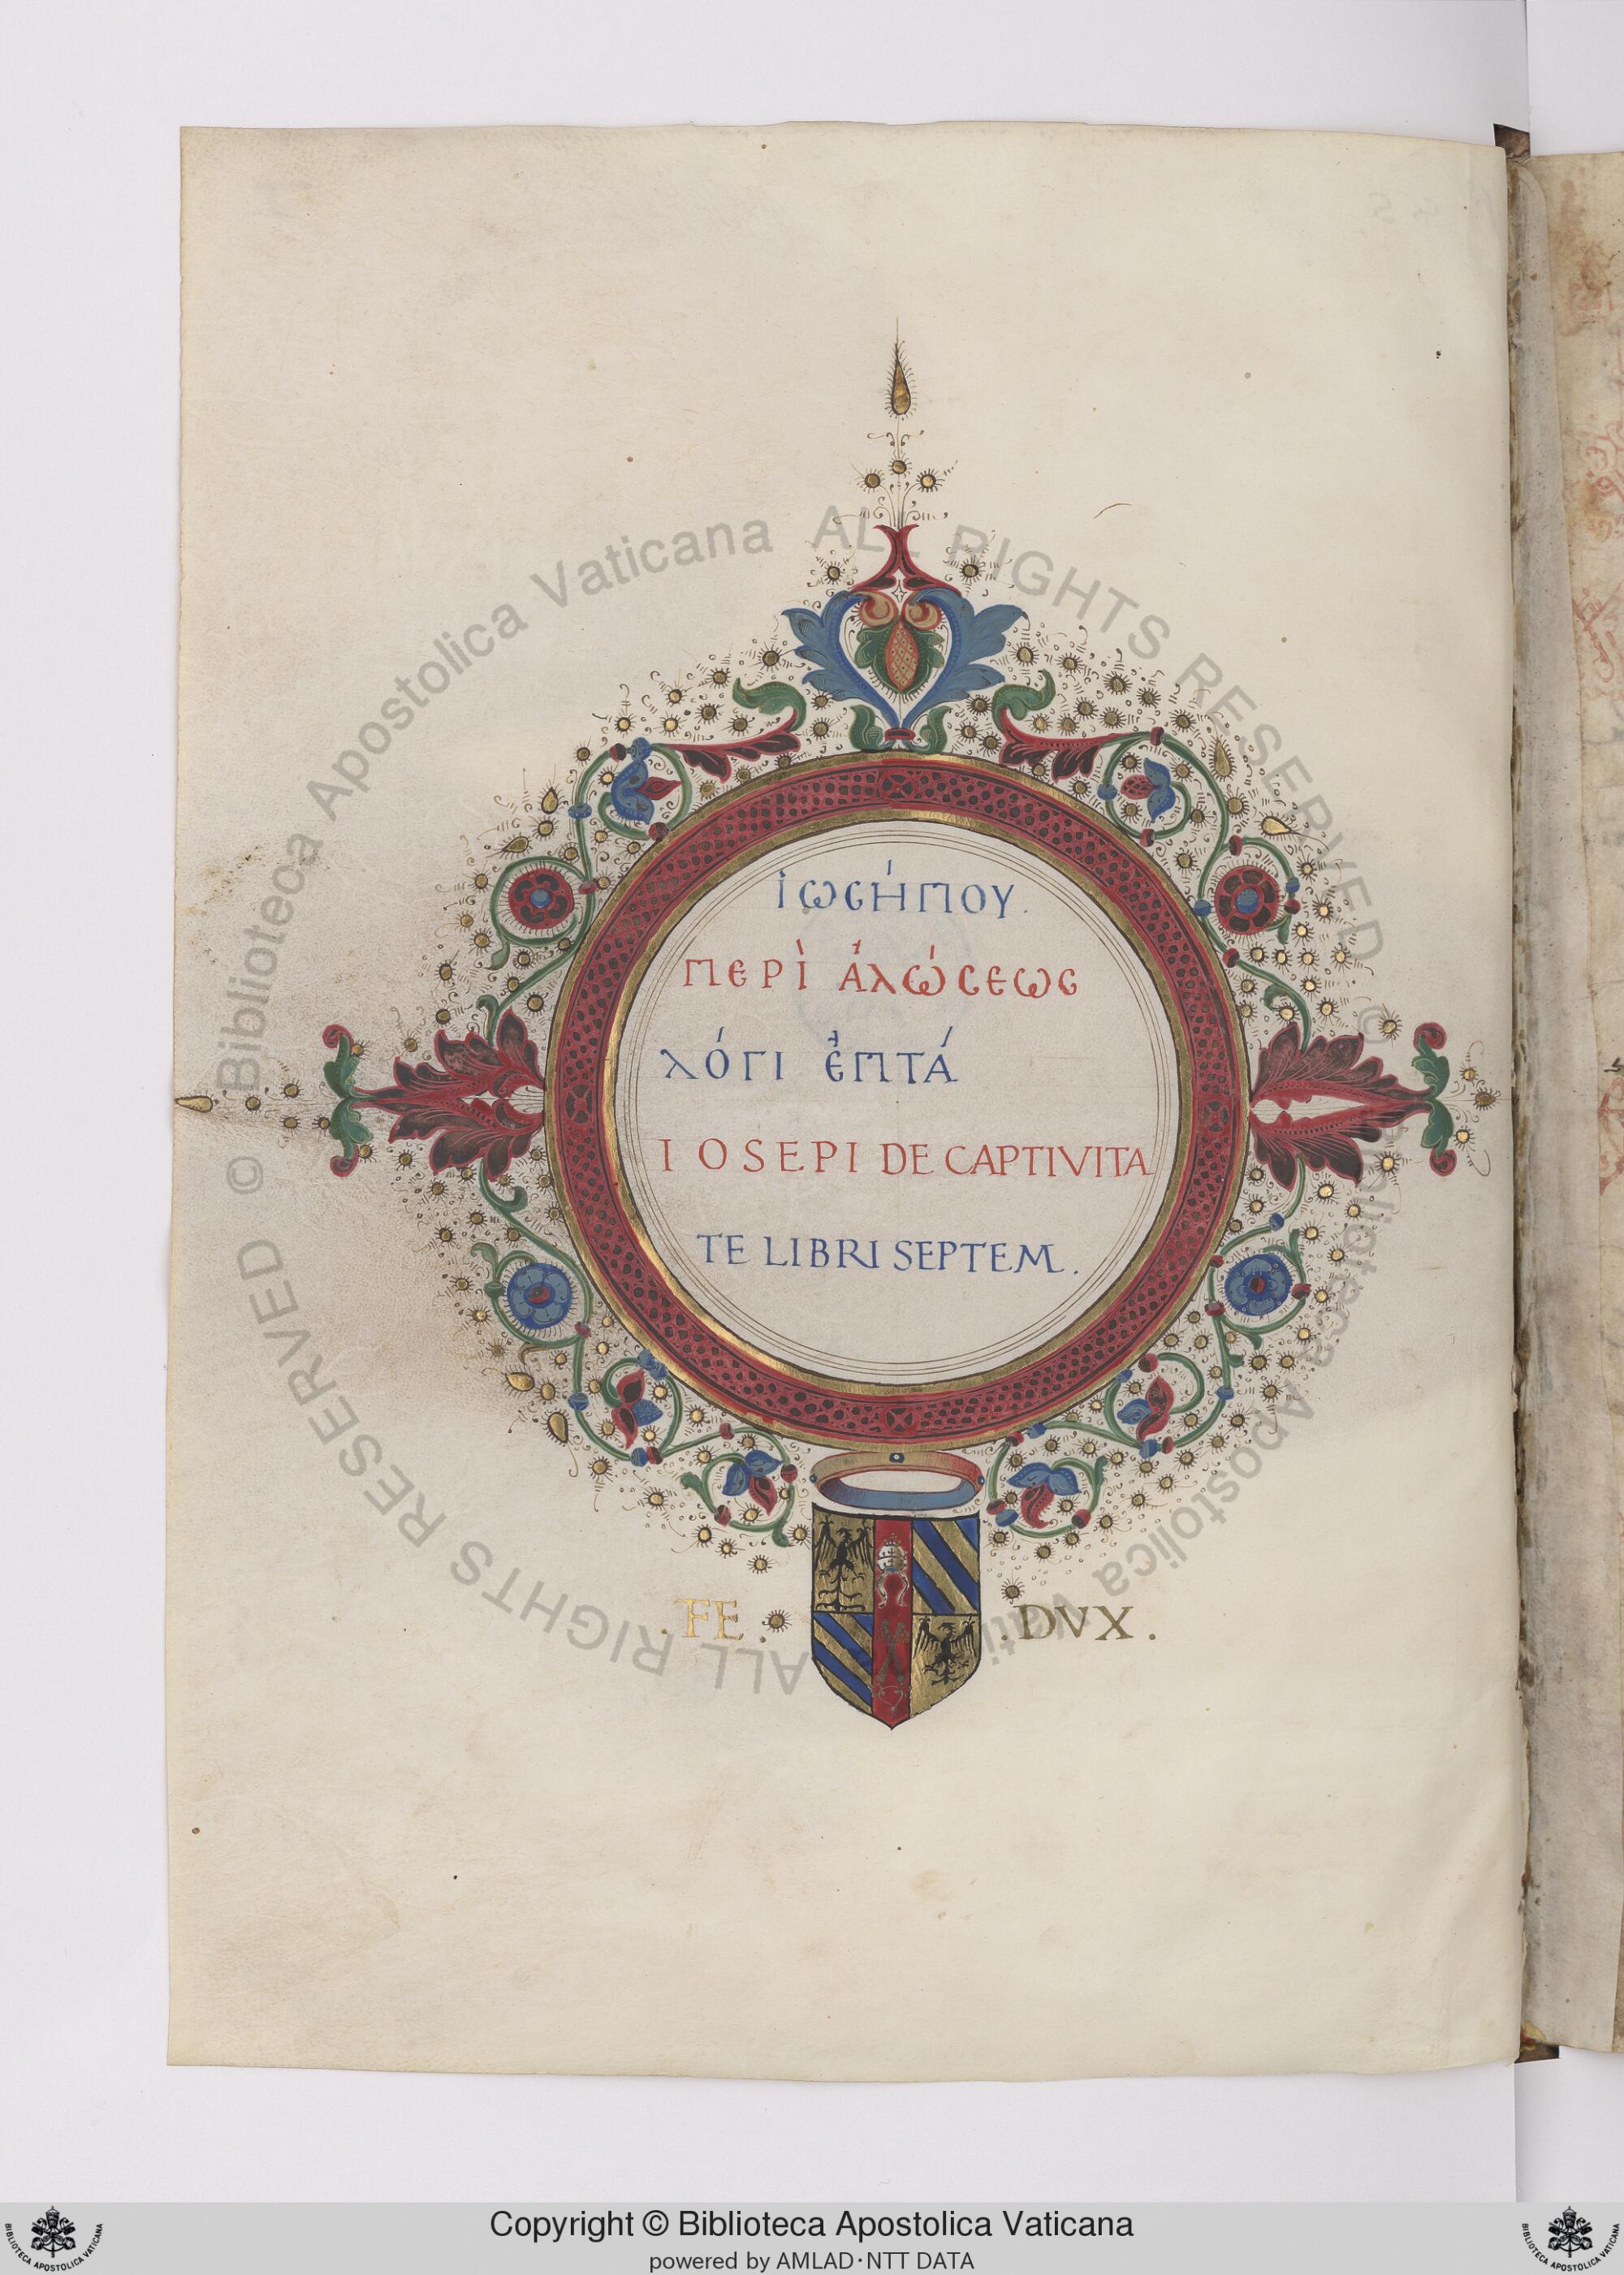 ἰωσήπου.
περὶ ἁλώσεως
λόγι ἑπτά
IOSEPI DE CAPTIVITA
TE LIBRI SEPTEM.
.FE.
.DVX.
© Biblioteca Apostolica Vaticana ALL RIGHTS RESERVED © Biblioteca Apostolica Vaticana ALL RIGHTS RESERVED
Copyright © Biblioteca Apostolica Vaticana
powered by AMLAD·NTT DATA
BIBLIOTECA APOSTOLICA VATICANA
BIBLIOTECA APOSTOLICA VATICANA